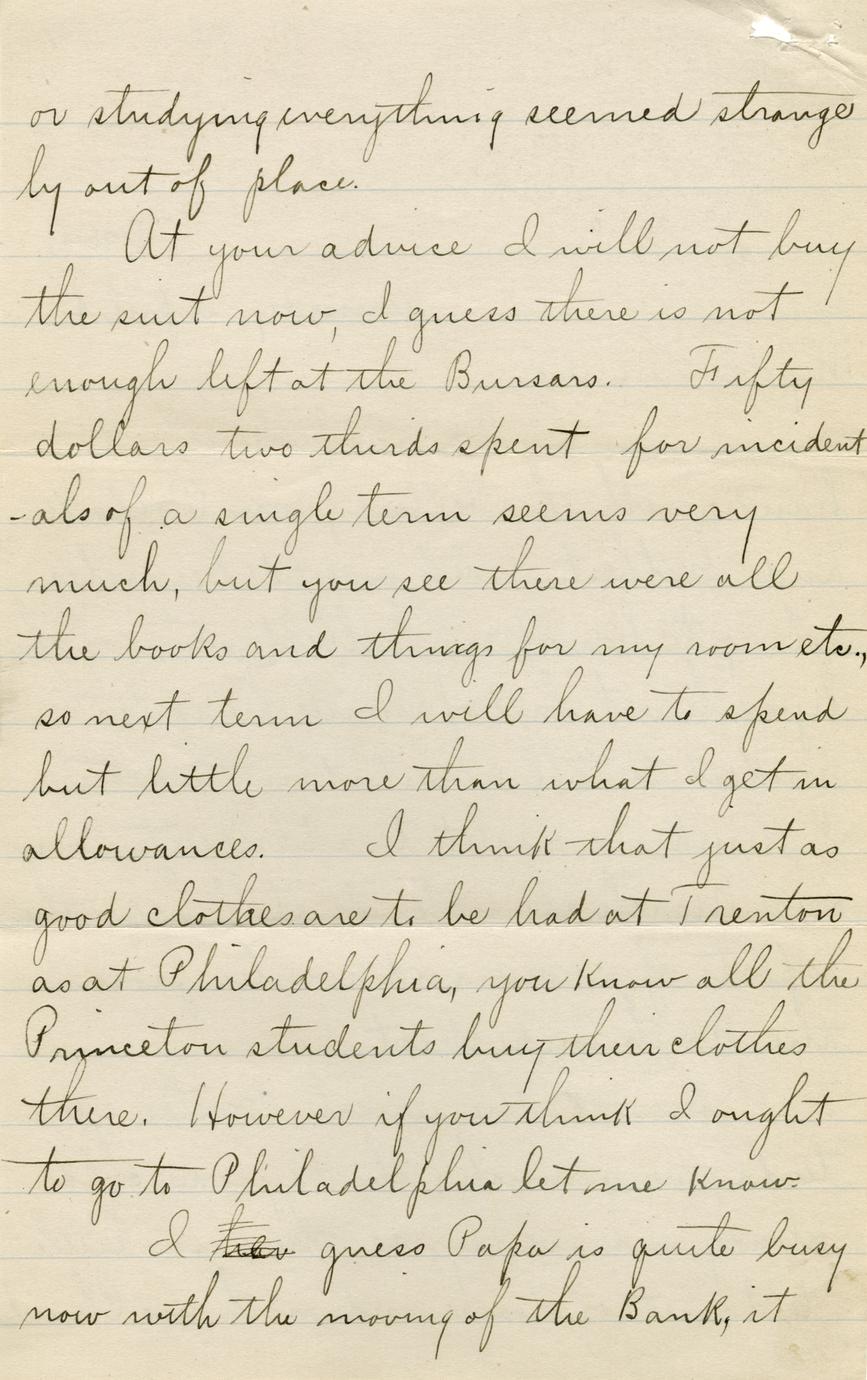 or studying everything seemed strange
ly out of place.
At your advice I will not buy
the suit now, I guess there is not
enough left at the Bursars. Fifty
dollars two thirds spent for incident
-als of a single term seems very
much, but you see there were all
the books and things for my room etc.,
so next term I will have to spend
but little more than what I get in
allowances. I think that just as
good clothes are to be had at Trenton
as at Philadelphia, you know all the
Princeton students buy their clothes
there. However if you think I ought
to go to Philadelphia let me know.
I guess Papa is quite busy
now with the moving of the Bank, it